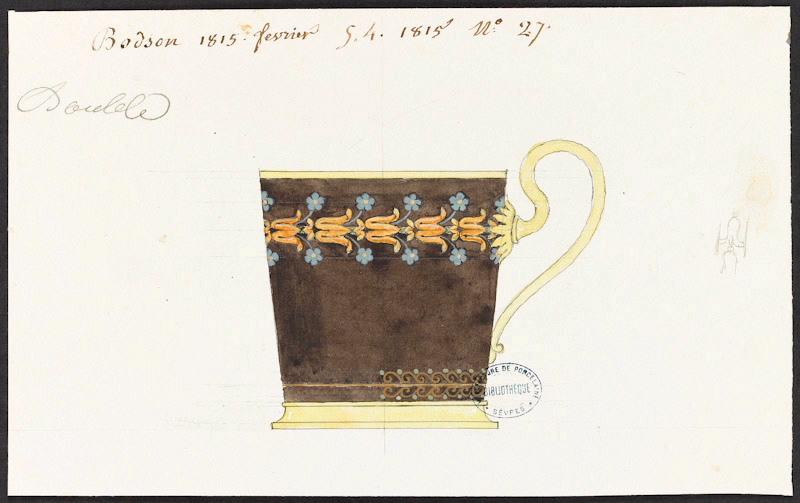 Bodson 1815 fevrier §. 4. 1815 N.º 27.
Double
MANUFACTURE DE PORCELAINE
BIBLIOTHÈQUE
SÈVRES